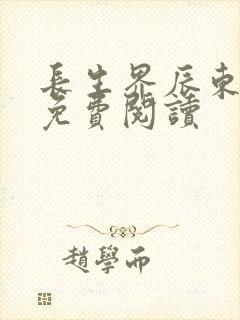 長生界辰東
免費閱讀
趙學而